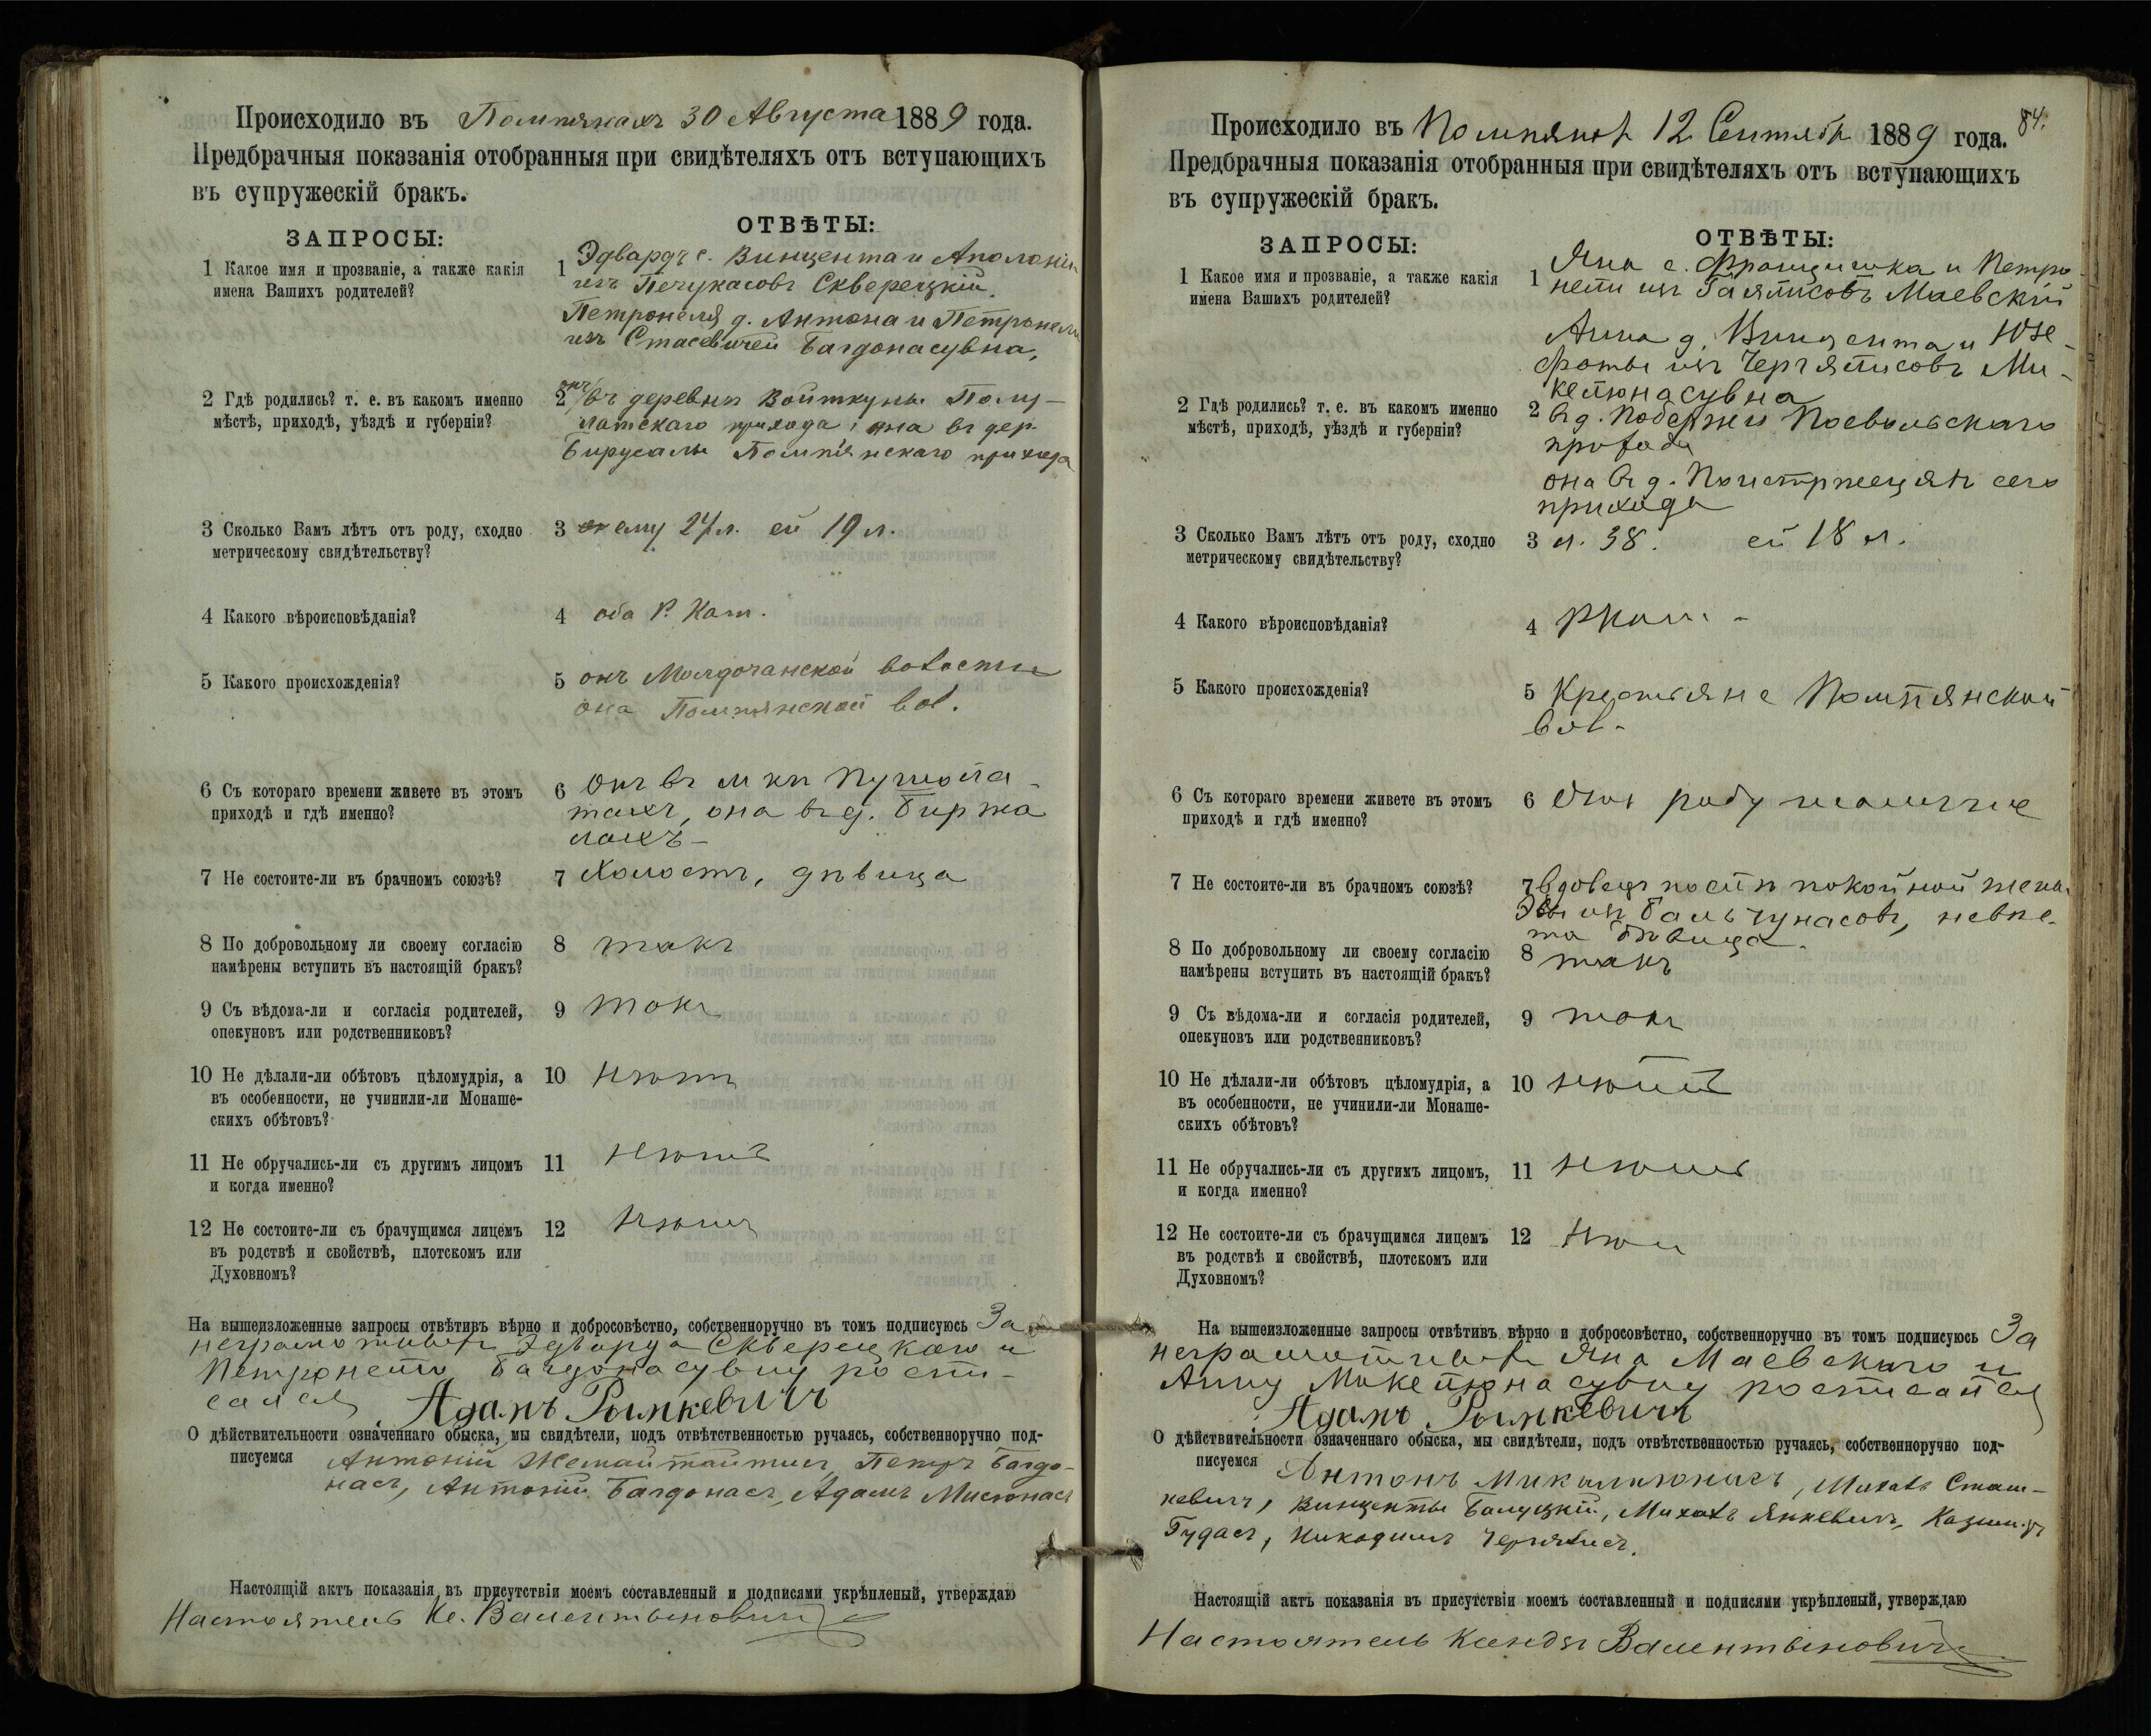 Происходило въ Помпянахъ 30 Августа 1889 года.
Предбрачныя показанія отобранныя при свидѣтеляхъ отъ вступающихъ
въ супружескій бракъ.
ЗАПРОСЫ:
ОТВѢТЫ:
1 Какое имя и прозваніе, а также какія
имена Вашихъ родителей?
1 Эдвардъ с. Винцента и Аполоніи
изъ Печукасовъ Скверецкій.
Петронеля д. Антона и Петронели
изъ Стасевичей Багдонасувна,
2 Гдѣ родились? т. е. въ какомъ именно
мѣстѣ, приходѣ, уѣздѣ и губерніи?
2 онъ въ деревнѣ Войткуны Пому-
латскаго прихода, она въ дер.
Помпянскаго прихода
3 Сколько Вамъ лѣтъ отъ роду, сходно
метрическому свидѣтельству?
3 ему 27 л. ей 19 л.
4 Какого вѣроисповѣданія?
4 оба Р. Кат.
5 Какого происхожденія?
5 онъ волости
она Помпянской вол.
6 Съ котораго времени живете въ этомъ
приходѣ и гдѣ именно?
6 Онъ въ м-кѣ Пушола-
тахъ, она въ д. Биржа
лахъ-
7 Не состоите-ли въ брачномъ союзѣ?
7 Холостъ, дѣвица
8 По добровольному ли своему согласію
намѣрены вступить въ настоящій бракъ?
8 такъ
9 Съ вѣдома-ли и согласія родителей,
опекуновъ или родственниковъ?
9 такъ
10 Не дѣлали-ли обѣтовъ цѣломудрія, а
въ особенности, не учинили-ли Монаше-
скихъ обѣтовъ?
10 нѣтъ
11 Не обручались-ли съ другимъ лицомъ
и когда именно?
11 нѣтъ
12 Не состоите-ли съ брачущимся лицемъ
въ родствѣ и свойствѣ, плотскомъ или
Духовномъ?
12 нѣтъ
На вышеизложенные запросы отвѣтивъ вѣрно и добросовѣстно, собственноручно въ томъ подписуюсь За
неграмотныхъ Эдварда Скверецкаго и
Петронелю Багдонасувну роспи-
сался Адамъ Рымкевичъ
О дѣйствительности означеннаго обыска, мы свидѣтели, подъ отвѣтственностью ручаясь, собственноручно под-
писуемся Антоній Жемайтайтисъ, Петръ Багдо-
насъ, Антоній Багдонасъ, Адамъ Мисюнасъ
Настоящій актъ показанія въ присутствіи моемъ составленный и подписями укрѣпленый, утверждаю
Настоятель Кс. Валентыновичъ
84.
Происходило въ Помпянахъ 12 Сентября 1889 года.
Предбрачныя показанія отобранныя при свидѣтеляхъ отъ вступающихъ
въ супружескій бракъ.
ЗАПРОСЫ:
ОТВѢТЫ:
1 Какое имя и прозваніе, а также какія
имена Вашихъ родителей?
1 Янъ с. Францишка и Петро-
нели изъ Маевскій
Анна д. Винцента и Юзе-
фаты изъ Чернятисовъ Ми-
келюнасувна
2 Гдѣ родились? т. е. въ какомъ именно
мѣстѣ, приходѣ, уѣздѣ и губерніи?
2 въ д. Посвольскаго
прихода
она въ д. сего
прихода
3 Сколько Вамъ лѣтъ отъ роду, сходно
метрическому свидѣтельству?
3 л. 38. ей 18 л.
4 Какого вѣроисповѣданія?
4 Р Кат. -
5 Какого происхожденія?
5 Крестьяне Помпянской
вол.
6 Съ котораго времени живете въ этомъ
приходѣ и гдѣ именно?
6 Отъ роду
7 Не состоите-ли въ брачномъ союзѣ?
7 вдовецъ послѣ покойной жены
Эвы изъ Бальчунасовъ, невѣс-
та дѣвица.
8 По добровольному ли своему согласію
намѣрены вступить въ настоящій бракъ?
8 такъ
9 Съ вѣдома-ли и согласія родителей,
опекуновъ или родственниковъ?
9 такъ
10 Не дѣлали-ли обѣтовъ цѣломудрія, а
въ особенности, не учинили-ли Монаше-
скихъ обѣтовъ?
10 нѣтъ
11 Не обручались-ли съ другимъ лицомъ,
и когда именно?
11 нѣтъ
12 Не состоите-ли съ брачущимся лицемъ
въ родствѣ и свойствѣ, плотскомъ или
Духовномъ?
12 нѣтъ
На вышеизложенные запросы отвѣтивъ вѣрно и добросовѣстно, собственноручно въ томъ подписуюсь За
неграмотныхъ Яна Маевскаго и
Анну Микелюнасувну росписался
Адамъ Рымкевичъ
О дѣйствительности означеннаго обыска, мы свидѣтели, подъ отвѣтственностью ручаясь, собственноручно под-
писуемся Антонъ Микалаюнасъ, Михалъ Сташ-
кевичъ, Винценты Балуцкій, Михалъ Янкевичъ, Казиміръ
Гудасъ, Никодимъ Чернятисъ.
Настоящій актъ показанія въ присутствіи моемъ составленный и подписями укрѣпленый, утверждаю
Настоятель Ксендзъ Валентыновичъ